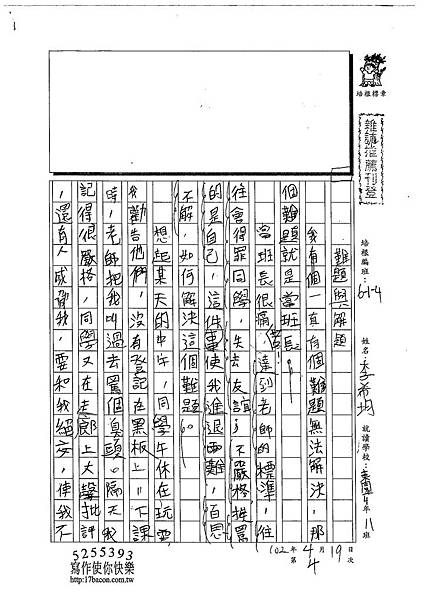 1
培根標章
雜誌推薦刊登
培根編班：
6J-4
姓名：
李希均
就讀學校：
4年11班
102年4月19日
第4次
難題與解題
我有個一直有個難題無法解決，那
個難題就是當班長！
當班長很痛苦，達到老師的標準，往
往會得罪同學，失去友誼；不嚴格推罵
的是自己，這件事使我進退兩難，百思
不解，如何解決這個難題呢
想起某天的中午，同學午休在玩耍
我勸告他們，沒有登記在黑板上，下課
時，老師把我叫過去罵個臭頭。隔天我
記得很嚴格，同學又在走廊上大聲批評
，還有人威脅我，要和我絕交，使我不
5255393
寫作使你快樂
http://17bacon.com.tw